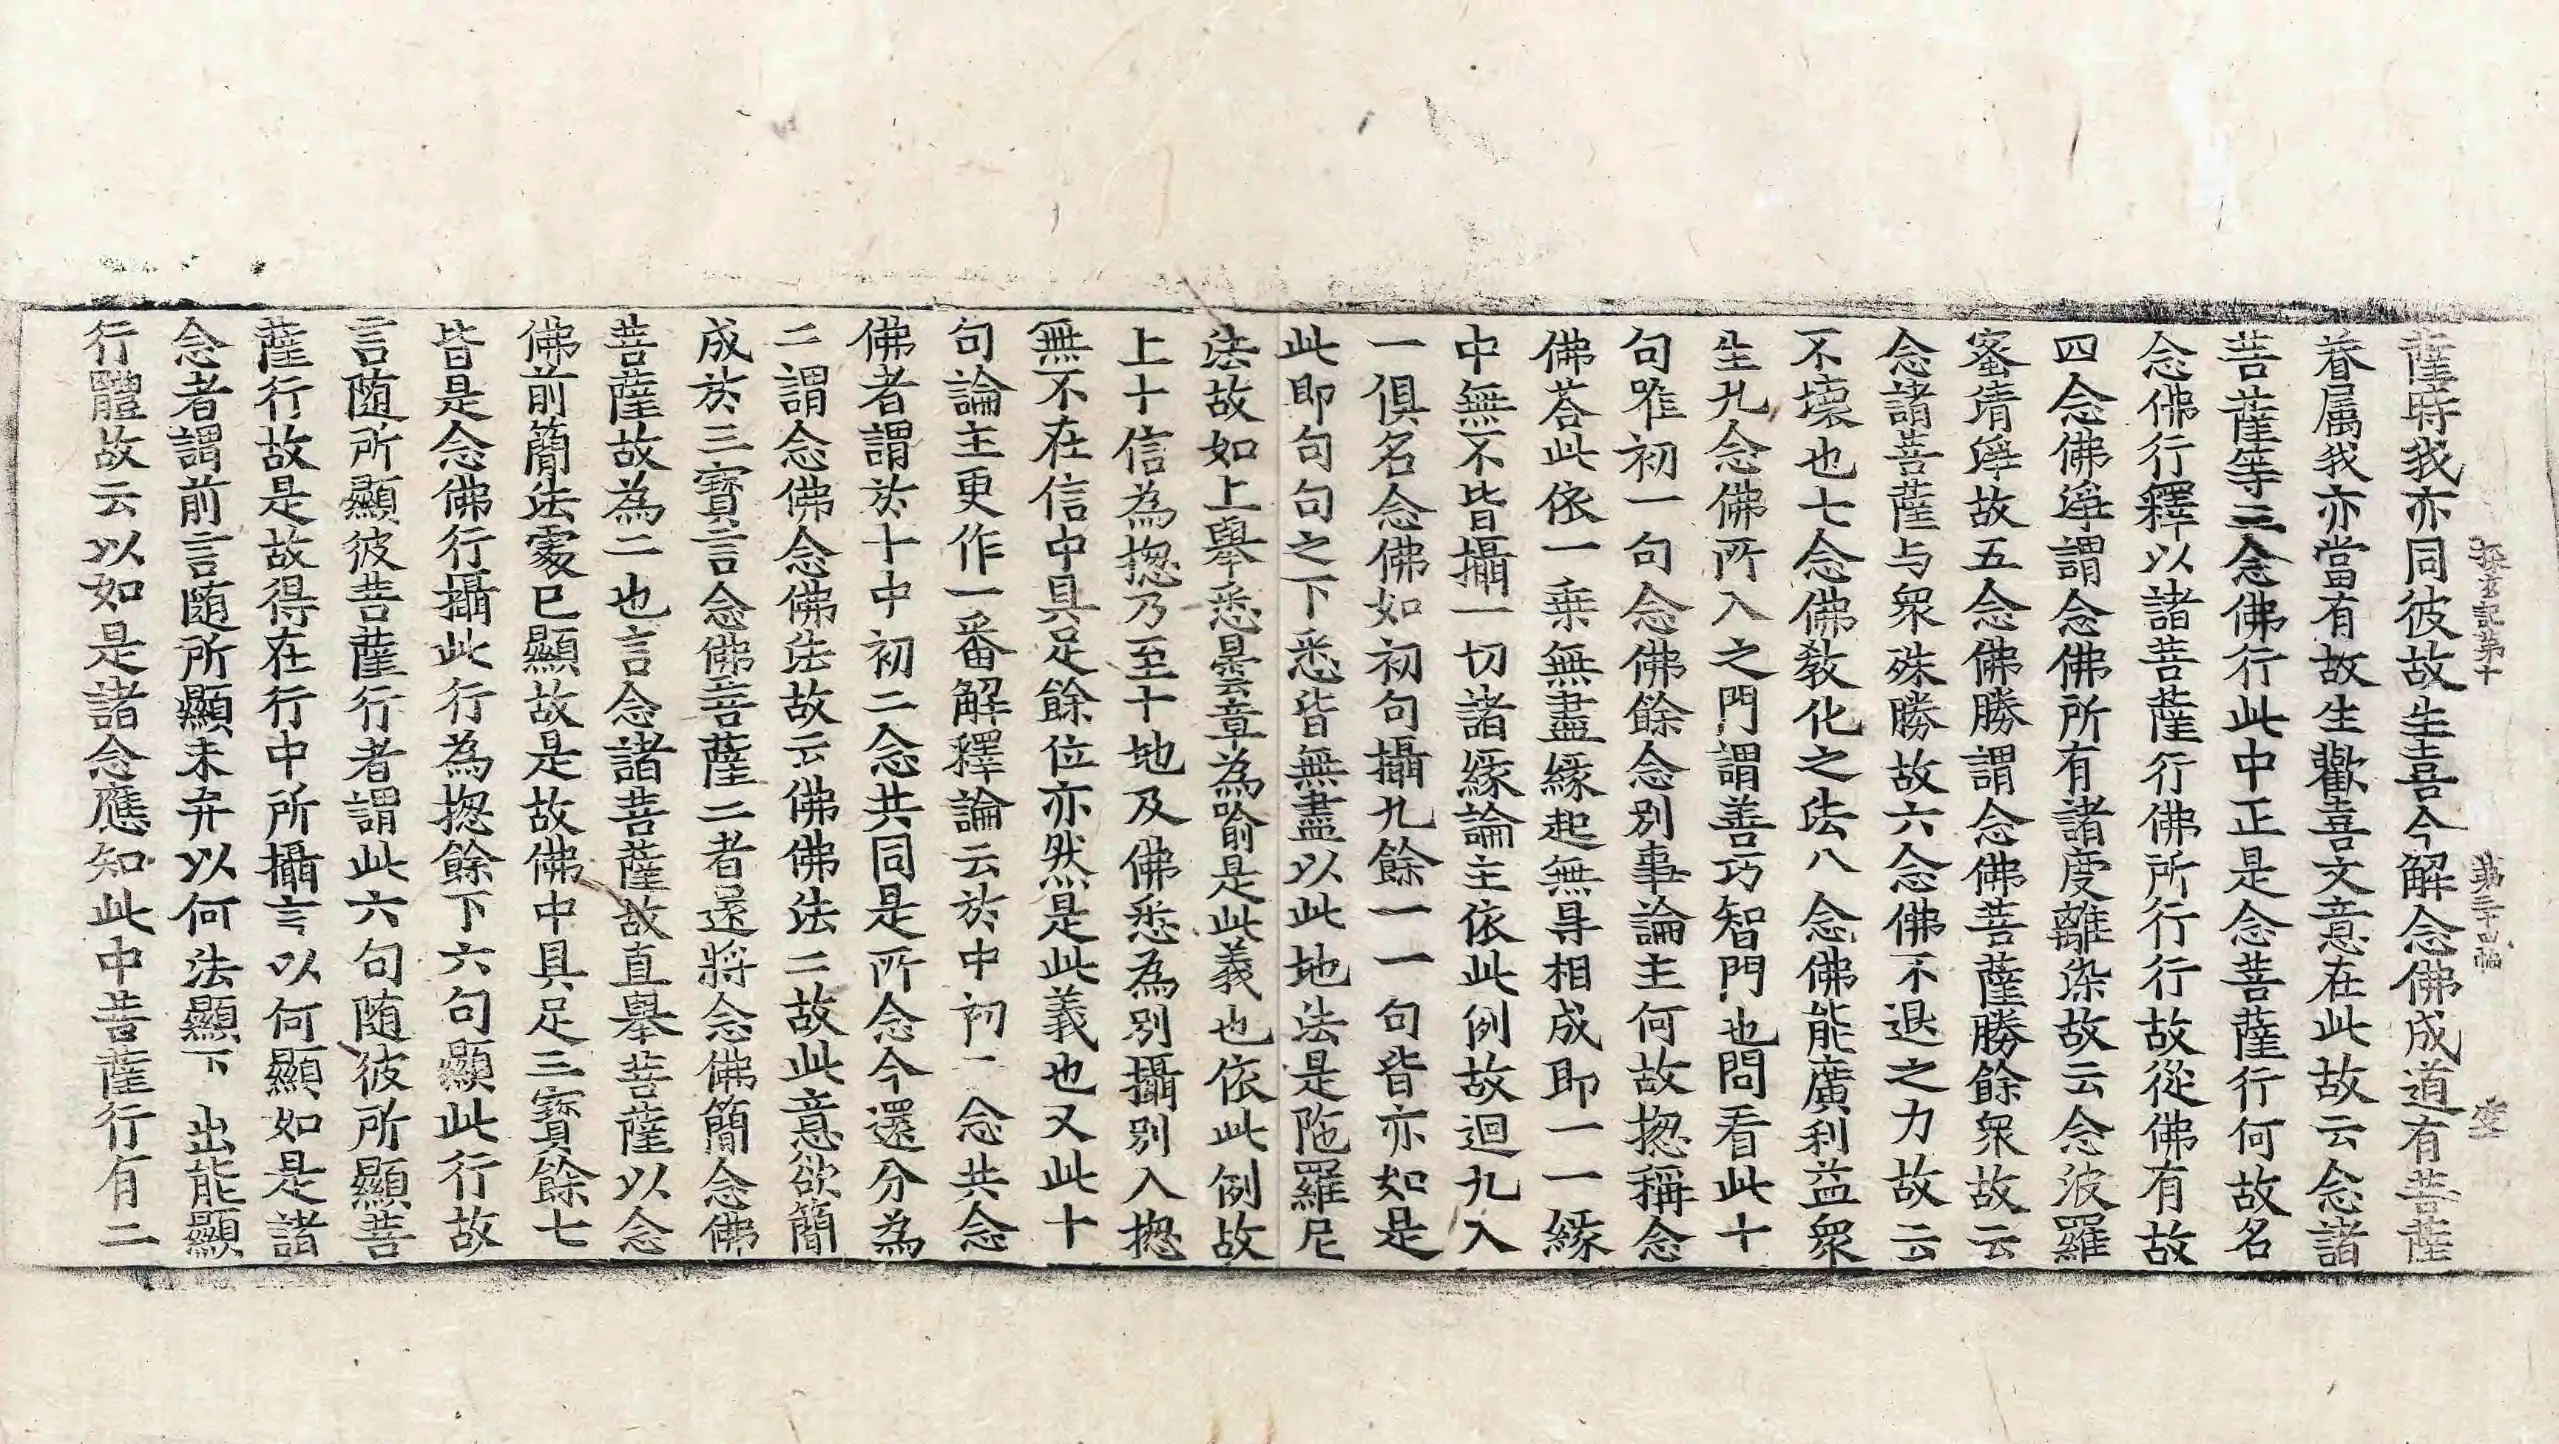 探玄記第十　第二十四幅　堂
薩時我亦同彼故生喜今解念佛成道有菩薩
眷属我亦當有故生歡喜文意在此故云念諸
菩薩等三念佛行此中正是念菩薩行何故名
念佛行釋以諸菩薩行佛所行行故從佛有故
四念佛淨謂念佛所有諸度離染故云念波羅
蜜清淨故五念佛勝謂念佛菩薩勝餘衆故云
念諸菩薩与衆殊勝故六念佛不退之力故云
不壞也七念佛教化之法八念佛能廣利益衆
生九念佛所入之門謂善巧智門也問看此十
句唯初一句念佛餘念别事論主何故揔稱念
佛荅此依一乗無盡緣起無㝵相成即一一緣
中無不皆攝一切諸緣論主依此例故迴九入
一俱名念佛如初句攝九餘一一句皆亦如是
此即句句之下悉皆無盡以此地法是陁羅尼
法故如上舉悉曇章為喻是此義也依此例故
上十信為揔乃至十地及佛悉為别攝别入揔
無不在信中具足餘位亦然是此義也又此十
句論主更作一番解釋論云於中初二念共念
佛者謂於十中初二念共同是所念今還分為
二謂念佛念佛法故云佛佛法二故此意欲簡
成於三寶言念佛菩薩二者還將念佛簡念佛
菩薩故為二也言念諸菩薩故直舉菩薩以念
佛前簡法處已顯故是故佛中具足三寶餘七
皆是念佛行攝此行為揔餘下六句顯此行故
言随所顯彼菩薩行者謂此六句随彼所顯菩
薩行故是故得在行中所攝言以何顯如是諸
念者謂前言随所顯未弁以何法顯下出能顯
行體故云以如是諸念應知此中菩薩行有二